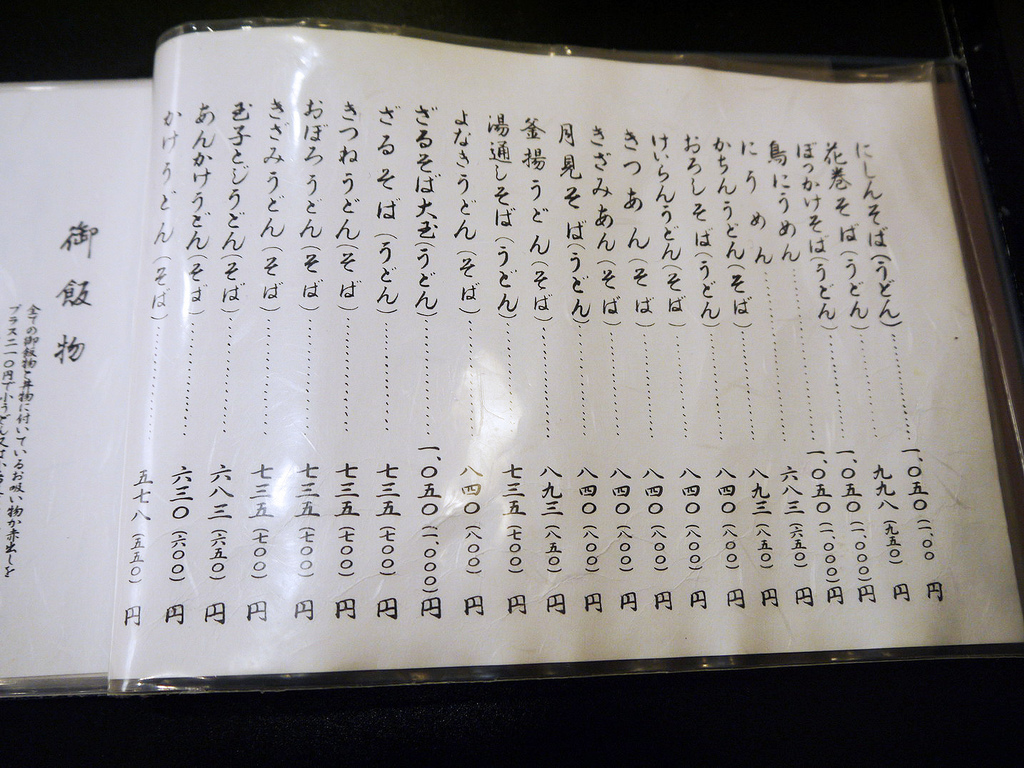 にしんそば(うどん)…………一、〇五〇(一、〇〇〇 円
花巻そば(うどん)…………九九八(九五〇) 円
ぼっかけそば(うどん)…………一、〇五〇(一、〇〇〇) 円
鳥にうめん…………一、〇五〇(一、〇〇〇) 円
にうめん…………六八三(六五〇) 円
かちんうどん(そば)…………八九三(八五〇) 円
おろしそば(うどん)…………八四〇(八〇〇) 円
けいらんうどん(そば)…………八四〇(八〇〇) 円
きつあん(そば)…………八四〇(八〇〇) 円
きざみあん(そば)…………八四〇(八〇〇) 円
月見そば(うどん)…………八四〇(八〇〇) 円
釜揚うどん(そば)…………八九三(八五〇) 円
湯通しそば(うどん)…………七三五(七〇〇) 円
よなきうどん(そば)…………八四〇(八〇〇) 円
ざるそば大玉(うどん)…………一、〇五〇(一、〇〇〇) 円
ざるそば(うどん)…………七三五(七〇〇) 円
きつねうどん(そば)…………七三五(七〇〇) 円
おぼろうどん(そば)…………七三五(七〇〇) 円
きざみうどん(そば)…………七三五(七〇〇) 円
玉子とじうどん(そば)…………六八三(六五〇) 円
あんかけうどん(そば)…………六三〇(六〇〇) 円
かけうどん(そば)…………五七八(五五〇) 円
御飯物
全ての御飯物と丼物に付いているお吸い物か赤出しを
プラス二一〇円で小うどん又は